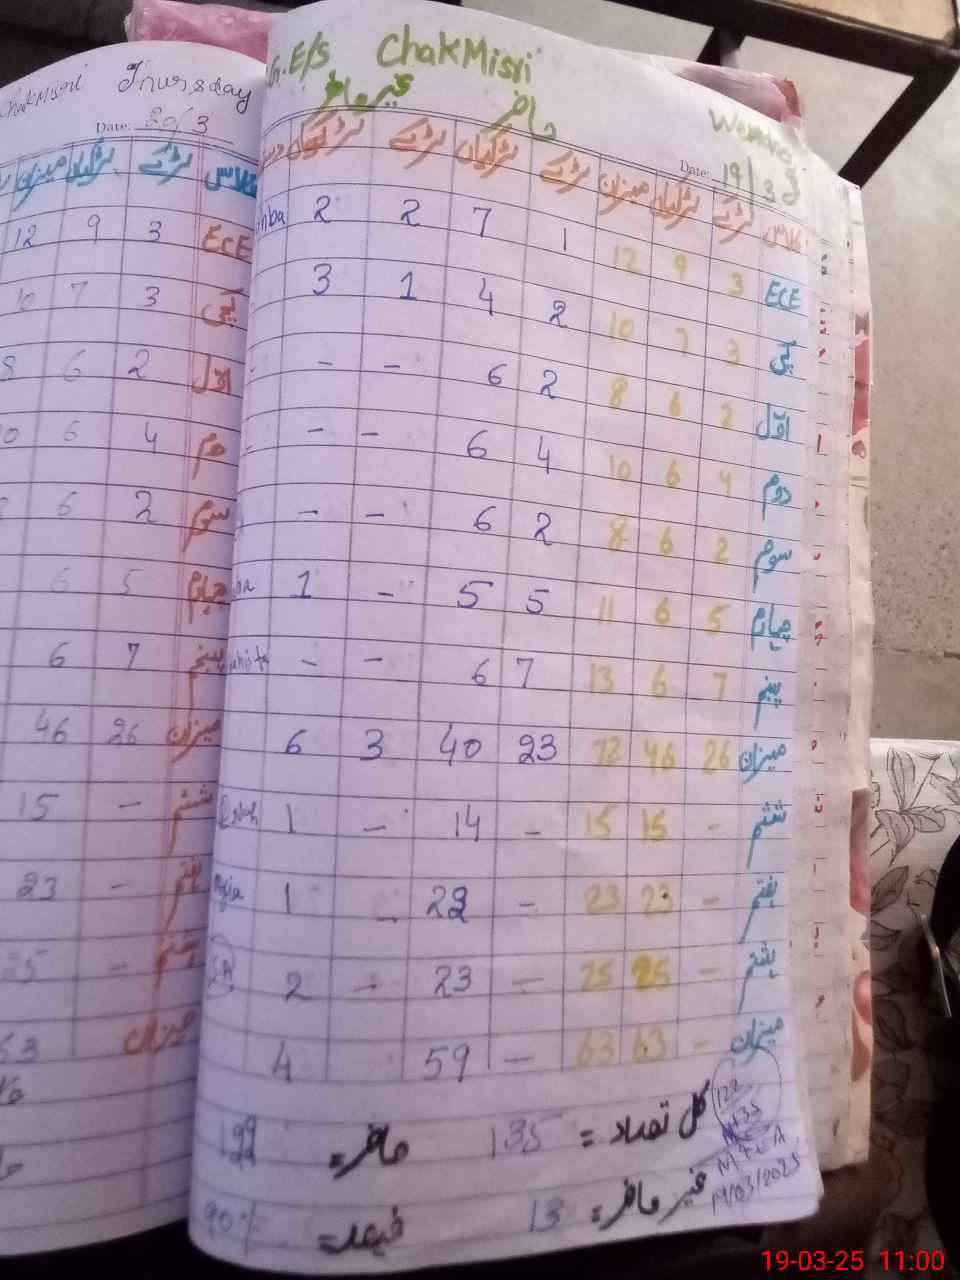 ChakMisri Thursday
Date: 20/3
کلاس لڑکے لڑکیاں میزان
ECE 3 9 12
کچی 3 7 10
اول 2 6 8
دوم 4 6
سوم 2 6
چہارم 5 6
پنجم 7 6
میزان 26 46
ششم - 15
ہفتم - 23
ہشتم - 25
میزان 63
G.E/S ChakMisri
Date: 19/3
حاضر غیر حاضر
کلاس لڑکے لڑکیاں میزان لڑکے لڑکیاں لڑکے لڑکیاں
ECE 3 9 12 1 7 2 2
کچی 3 7 10 2 4 1 3
اول 2 6 8 2 6 - -
دوم 4 6 10 4 6 - -
سوم 2 6 8 2 6 - -
چہارم 5 6 11 5 5 - 1
پنجم 7 6 13 7 6 - -
میزان 26 46 72 23 40 3 6
ششم - 15 15 - 14 - 1
ہفتم - 23 23 - 22 - 1
ہشتم - 25 25 - 23 - 2
میزان - 63 63 - 59 4
کل تعداد = 135 حاضر = 122
غیر حاضر = 13 فیصد = 90%
122
135
MEA
19/03/2025
19-03-25 11:00